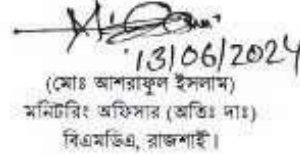 13/06/2024
(মোঃ আশরাফুল ইসলাম)
মনিটরিং অফিসার (অতিঃ দাঃ)
বিএমডিএ, রাজশাহী।